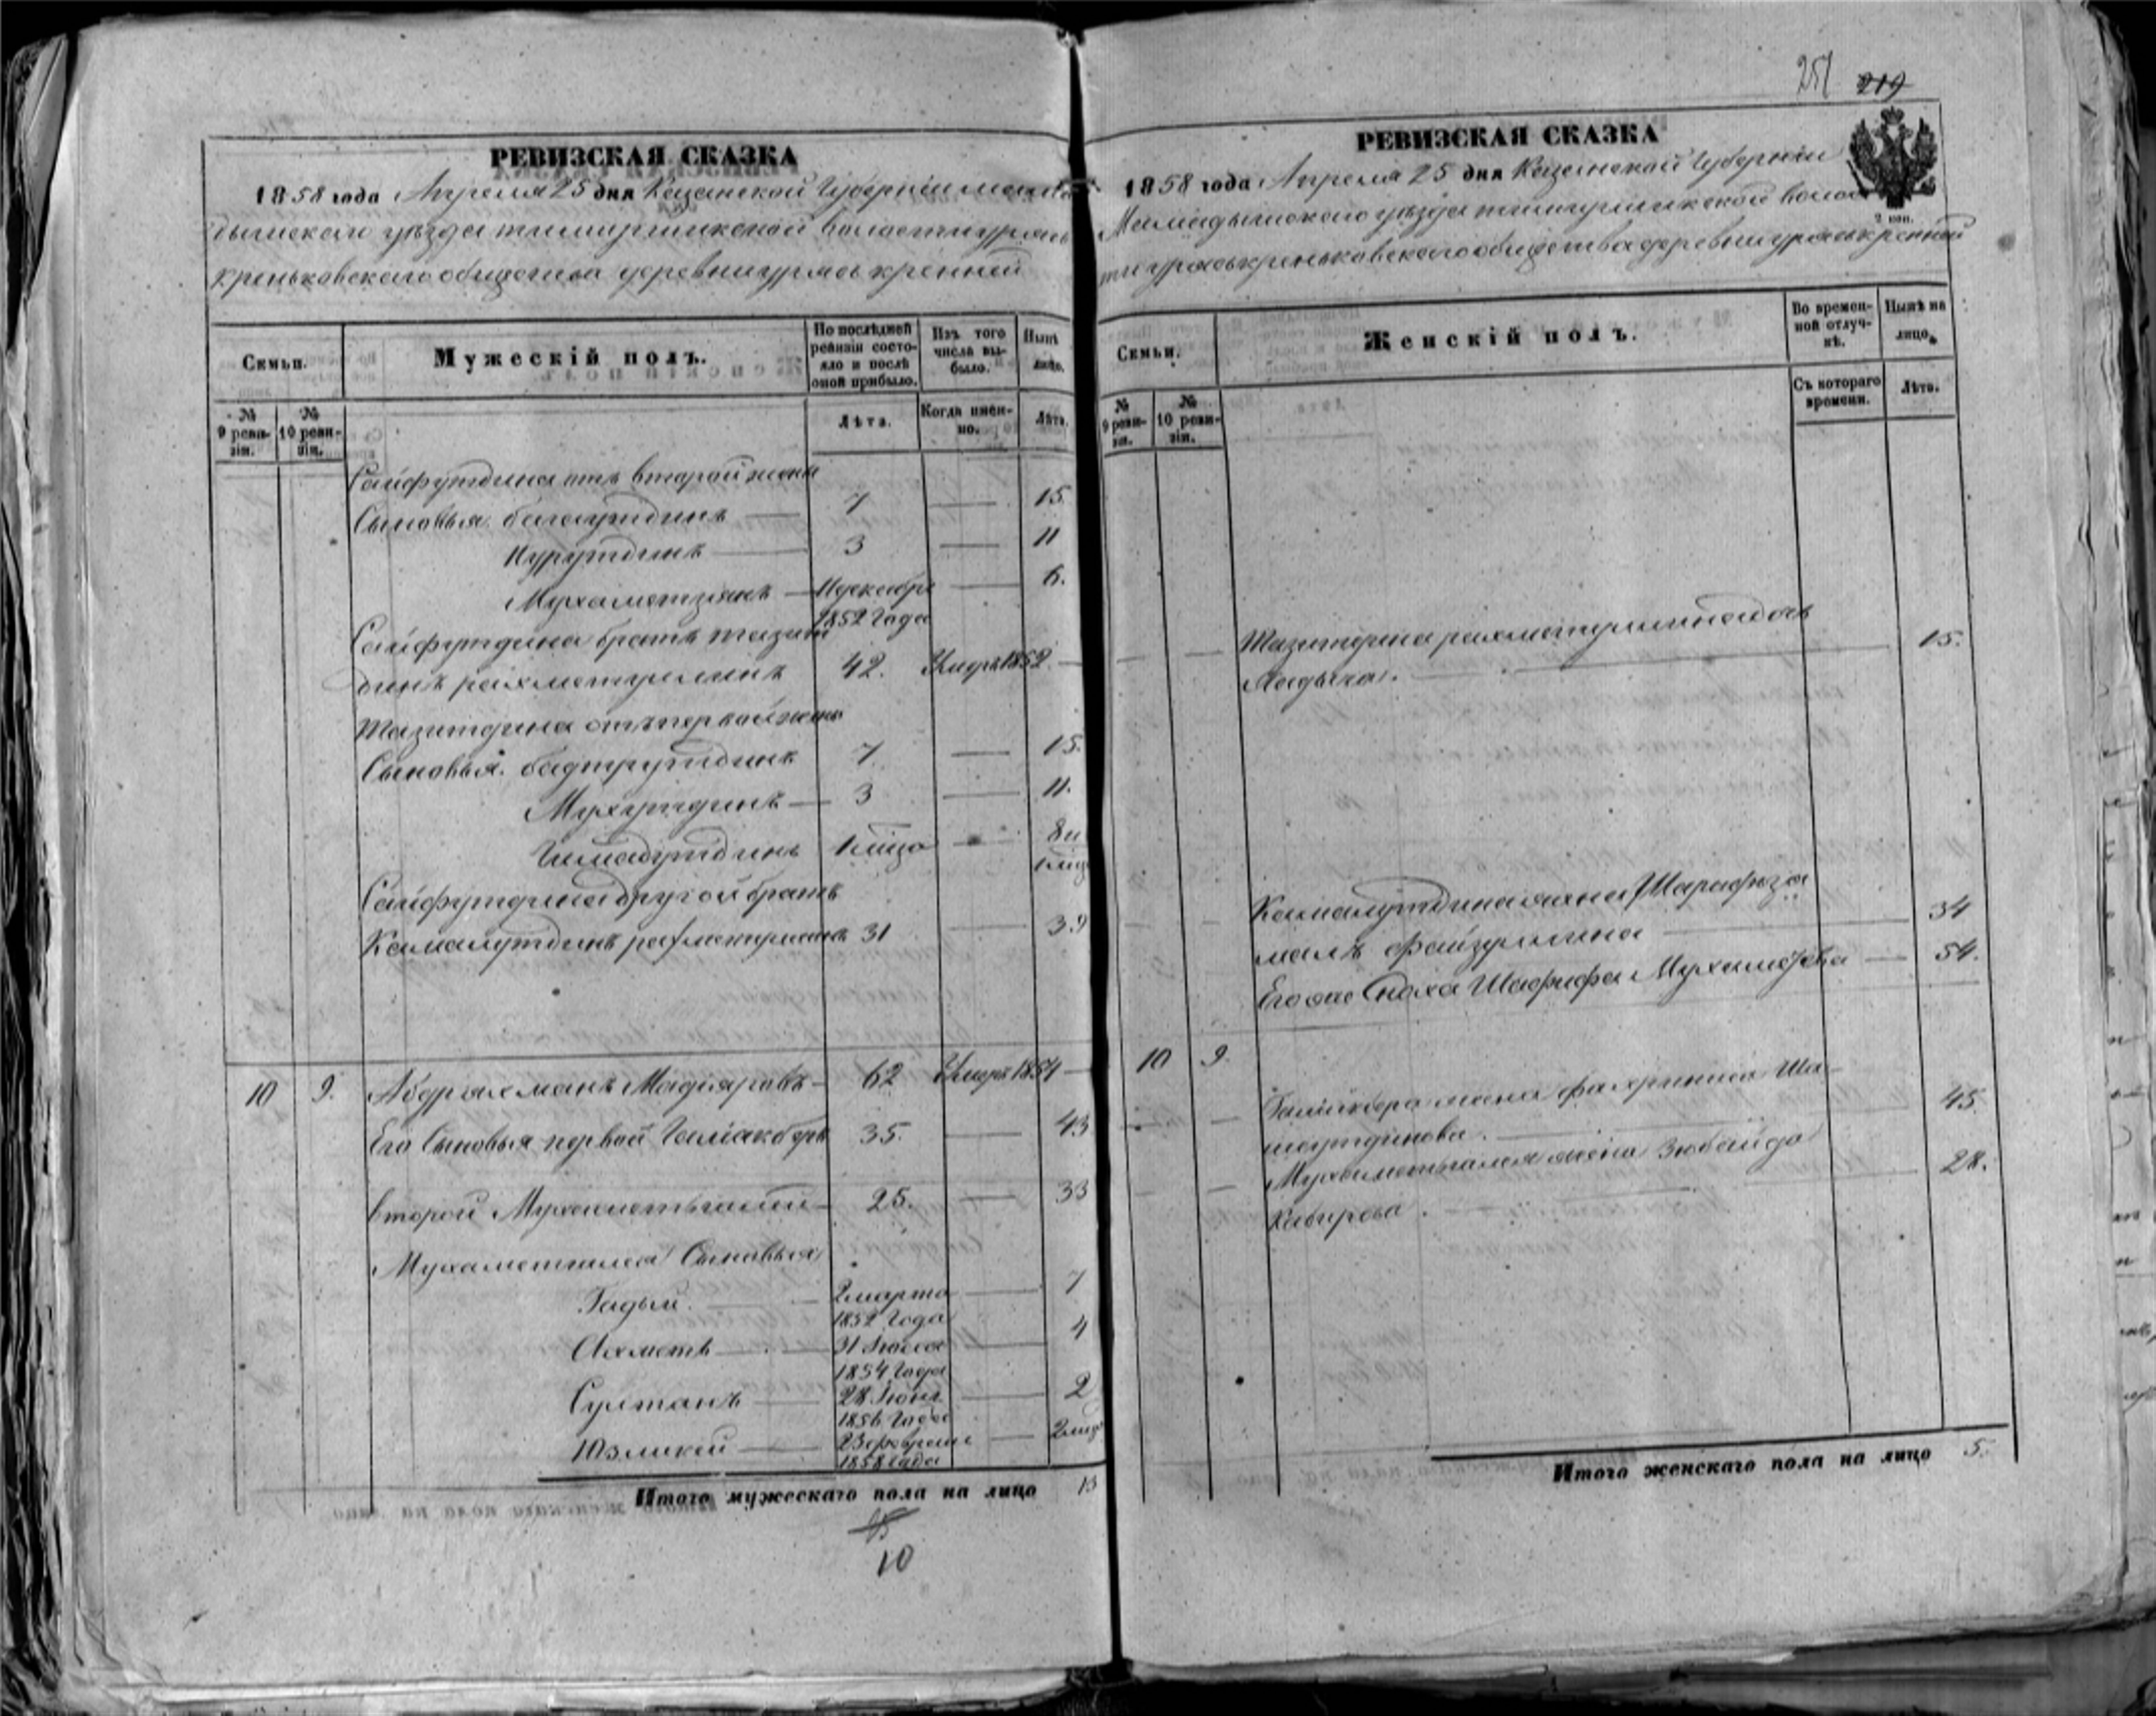 РЕВИЗСКАЯ СКАЗКА
1858 года Апреля 25 дня Казанской Губернии Мама
дышскаго уезда волости
креньковскаго общества деревни
Семьи.
Мужескій полъ.
По послѣдней ревизіи состояло и послѣ оной прибыло.
Изъ того числа выбыло.
Нынѣ лицо.
№ 9 ревизіи.
№ 10 ревизіи.
Лѣта.
Когда именно.
Лѣта.
Сайфутдина отъ второй жены
Сыновья багаутдинъ 7 — 15.
Нурутдинъ 3 — 11
Мухаметзянъ Декабря 1852 года — 6.
Сайфутдина братъ тазит
динъ рахметуллинъ 42. Умеръ 1852. —
Тазитдина отъ первой жены
Сыновья. бадтрутдинъ 7. — 15.
Мухутдинъ 3 — 11.
Гимадутдинъ 1 мѣца — 8 и 1 мѣц
Сайфутдина другой братъ
Камалутдинъ рахметуллинъ 31 — 39
10 9. Абдрахманъ Мадияровъ 62 Умеръ 1854 —
Его Сыновья первой Галіакберъ 35. — 43
второй Мухаметьгалей 25. — 33
Мухаметгалея Сыновья
Гадый. 2 марта 1852 года — 7
Ахметъ 31 1854 года — 4
Султанъ 28 Іюня 1856 года — 2
Юзликей 23 февраля 1858 года — 2 мѣц
Итого мужескаго пола на лицо 13
10
251 219
РЕВИЗСКАЯ СКАЗКА
1858 года Апреля 25 дня Казанской Губерніи
2 коп.
Мамадышскаго уезда волос
ти общества деревни
Семьи.
Женскій полъ.
Во временной отлучкѣ.
Нынѣ на лицо.
№ 9 ревизіи.
№ 10 ревизіи.
Съ котораго времени.
Лѣта.
Тазитдина рахметуллина дочь
Хадыча. 15.
Камалутдина жена Шарафъза
малъ Файзуллина 34
Его же Сноха Шафифа 54.
10 9.
Галиакбера жена фахриниса Ша
45.
Мухаметгалея жена Зюбайда
Кабирова. 28.
Итого женскаго пола на лицо 5.